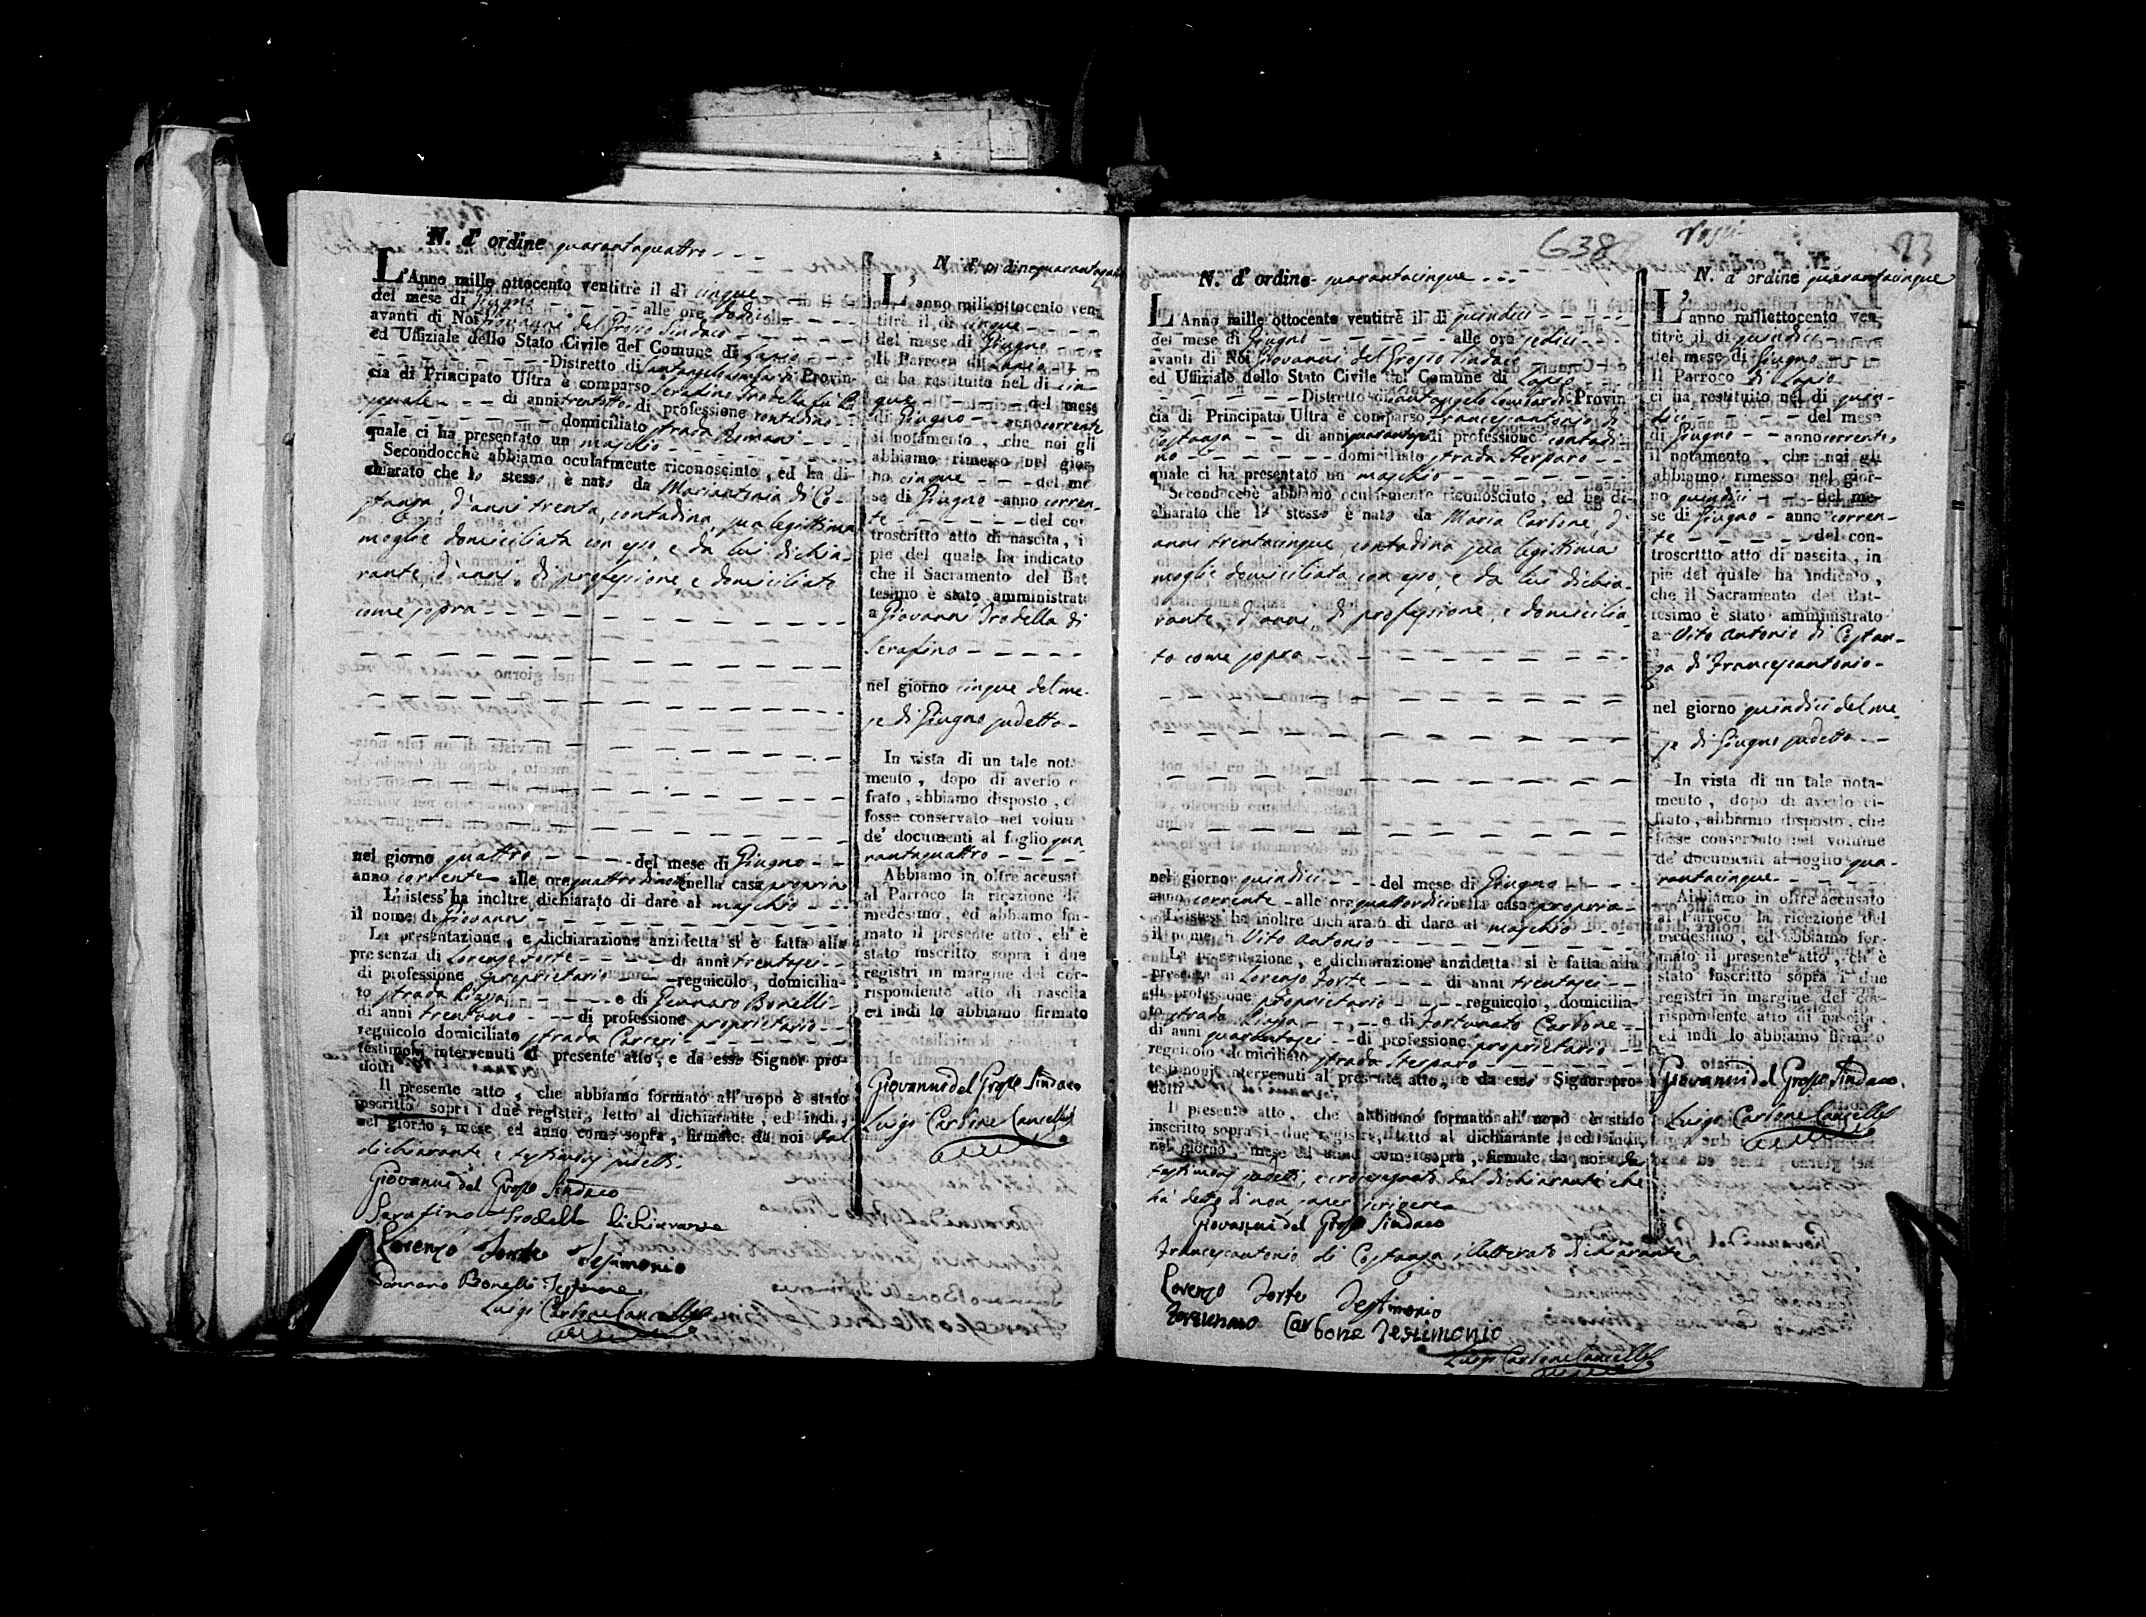 N. d' ordine quarantaquattro
L'Anno mille ottocento ventitrè il dì cinque
del mese di Giugno alle ore dodici
avanti di Noi Giovanni del Grosso Sindaco
ed Uffiziale dello Stato Civile del Comune di Lapio
Distretto di Santangelo Lombardi Provin-
cia di Principato Ultra è comparso Serafino Trodella fu Pa
squale di anni trentotto di professione contadino
domiciliato strada Romani
quale ci ha presentato un maschio
Secondocchè abbiamo ocularmente riconosciuto, ed ha di-
chiarato che lo stesso è nato da Mariantonia di Co-
stanza, d'anni trenta, contadina, sua legittima
moglie domiciliata con esso, e da lui dichia-
rante, d'anni, di professione, e domiciliato
come sopra
nel giorno quattro del mese di Giugno
anno corrente alle ore quattordici nella casa propria
L'istess' ha inoltre dichiarato di dare al maschio
il nome di Giovanni
La presentazione, e dichiarazione anzidetta si è fatta alla
presenza di Lorenzo Forte di anni trentasei
di professione proprietario regnicolo, domicilia-
to strada Piazza e di Gennaro Bonelli
di anni trentuno di professione proprietario
regnicolo domiciliato strada Carceri
testimonj intervenuti al presente atto, e da esso Signor pro-
dotti
Il presente atto, che abbiamo formato all'uopo è stato
inscritto sopra i due registri, letto al dichiarante, ed indi,
nel giorno, mese ed anno come sopra, firmato da noi dal
dichiarante e testimonj sudetti.
Giovanni del Grosso Sindaco
Serafino Trodella Dichiarante
Lorenzo Forte Testimonio
Gennaro Bonelli Testimone
Luigi Carbone Cancell.
N. d' ordine quarantaqua
L' anno millettocento ven
titrè il dì cinque
del mese di Giugno
Il Parroco di Lapio
ci ha restituito nel dì cin-
que del mese
di Giugno anno corrente
il notamento, che noi gli
abbiamo rimesso nel gior-
no cinque del me
se di Giugno anno corren-
te del con
troscritto atto di nascita, i
piè del quale ha indicato
che il Sacramento del Bat
tesimo è stato amministrato
a Giovanni Trodella di
Serafino
nel giorno cinque del me-
se di Giugno sudetto
In vista di un tale nota
mento, dopo di averlo c
frato, abbiamo disposto, ch
fosse conservato nel volun
de' documenti al foglio qua
rantaquattro
Abbiamo in oltre accusat
al Parroco la ricezione de
medesimo, ed abbiamo for-
mato il presente atto, ch' è
stato inscritto sopra i due
registri in margine del cor-
rispondente atto di nascita
ed indi lo abbiamo firmato
Giovanni del Grosso Sindaco
Luigi Carbone Cancell.
638
23
N. d' ordine quarantacinque
L'Anno mille ottocento ventitrè il dì quindici
del mese di Giugno alle ore sedici
avanti di Noi Giovanni del Grosso Sindaco
ed Uffiziale dello Stato Civile del Comune di Lapio
Distretto di Santangelo Lombardi Provin-
cia di Principato Ultra è comparso Francescantonio di
Costanza di anni quarantasei di professione contadi-
no domiciliato strada Sterparo
quale ci ha presentato un maschio
Secondocchè abbiamo ocularmente riconosciuto, ed ha di-
chiarato che lo stesso è nato da Maria Carbone d'
anni trentacinque contadina sua legittima
moglie domiciliata con esso, e da lui dichia-
rante, d'anni, di professione, e domicilia-
to come sopra
nel giorno quindici del mese di Giugno
anno corrente alle ore quattordici nella casa propria
L'istess' ha inoltre dichiarato di dare al maschio
il nome di Vito Antonio
La presentazione, e dichiarazione anzidetta si è fatta alla
presenza di Lorenzo Forte di anni trentasei
di professione proprietario regnicolo, domicilia-
to strada Piazza e di Fortunato Carbone
di anni quarantasei di professione proprietario
regnicolo domiciliato strada Sterparo
testimonj intervenuti al presente atto, e da esso Signor pro-
dotti
Il presente atto, che abbiamo formato all' uopo è stato
inscritto sopra i due registri, letto al dichiarante ed indi,
nel giorno, mese ed anno come sopra, firmato da noi da
testimonj sudetti, e crocesegnato dal dichiarante che
ha detto di non saper scrivere
Giovanni del Grosso Sindaco
Francescantonio di Costanza illetterato dichiarante
Lorenzo Forte Testimonio
Fortunato Carbone Testimonio
Luigi Carbone Cancell.
N. d' ordine quarantacinque
L' anno millettocento ven-
titrè il dì quindici
del mese di Giugno
Il Parroco di Lapio
ci ha restituito nel dì quin-
dici del mese
di Giugno anno corrente,
il notamento, che noi gli
abbiamo rimesso nel gior-
no quindici del me-
se di Giugno anno corren-
te del con-
troscritto atto di nascita, in
piè del quale ha indicato,
che il Sacramento del Bat-
tesimo è stato amministrato
a Vito Antonio di Costan-
za di Francescantonio
nel giorno quindici del me-
se di Giugno sudetto
In vista di un tale nota-
mento, dopo di averlo ci-
frato, abbiamo disposto, che
fosse conservato nel volume
de' documenti al foglio qua-
rantacinque
Abbiamo in oltre accusato
al Parroco la ricezione del
medesimo, ed abbiamo for-
mato il presente atto, ch' è
stato inscritto sopra i due
registri in margine del cor-
rispondente atto di nascita,
ed indi lo abbiamo firmato
Giovanni del Grosso Sindaco
Luigi Carbone Cancell.